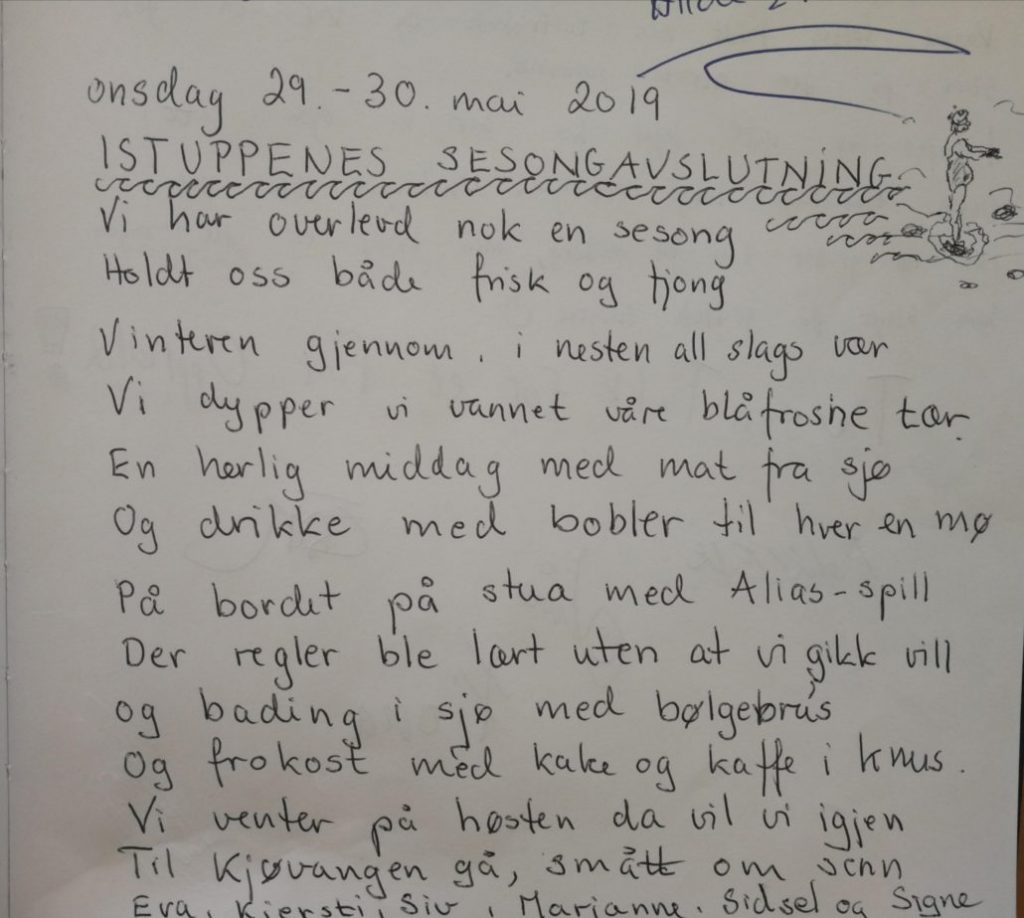 onsdag 29.-30. mai 2019
ISTUPPENES SESONGAVSLUTNING
Vi har overlevd nok en sesong
Holdt oss både frisk og fjong
Vinteren gjennom. i nesten all slags vær
Vi dypper vi vannet våre blåfrosne tær.
En herlig middag med mat fra sjø
Og drikke med bobler til hver en mø
På bordet på stua med Alias-spill
Der regler ble lært uten at vi gikk vill
og bading i sjø med bølgebrus
Og frokost med kake og kaffe i krus.
Vi venter på høsten da vil vi igjen
Til Kjøvangen gå, smått om senn
Eva, Kjersti, Siv, Marianne, Sidsel og Signe